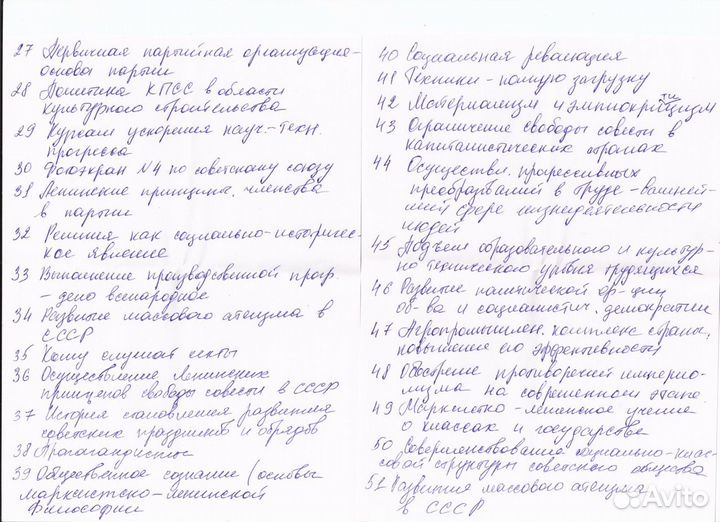 27 Первичная партийная организация-
основа партии
28 Политика КПСС в области
культурного строительства
29 Курсом ускорения науч.-техн.
прогресса
30 Фотоэкран N4 по советскому союзу
31 Ленинские принципы. членства
в партии
32 Религия как социально-историчес-
кое явление
33 Выполнение производственной прогр.
- дело всенародное
34 Развитие массового атеизма в
СССР
35 Кому служат секты
36 Осуществление Ленинских
принципов свободы совести в СССР
37 История становления развития
советских праздников и обрядов
38 Пропагандисты
39 Общественное сознание (основы
марксистско-ленинской
философии
40 Социальная революция
41 Технике - полную загрузку
42 Материализм и эмпиокритицизм
43 Ограничение свободы совести в
капиталистических странах
44 Осуществл. прогрессивных
преобразований в труде - важней-
шей сфере жизнедеятельности
людей
45 Подъем образовательного и культур-
но технического уровня трудящихся
46 Развитие политической ор-ции
об-ва и социалистич. демократии
47 Агропромышлен. комплекс страны,
повышение его эффективности
48 Обострение противоречий империа-
лизма на современном этапе
49 Марксистко-ленинское учение
о классах и государстве
50 Совершенствование социально-клас-
совой структуры советского общества
51 Развития массового атеизма
в СССР
Avito